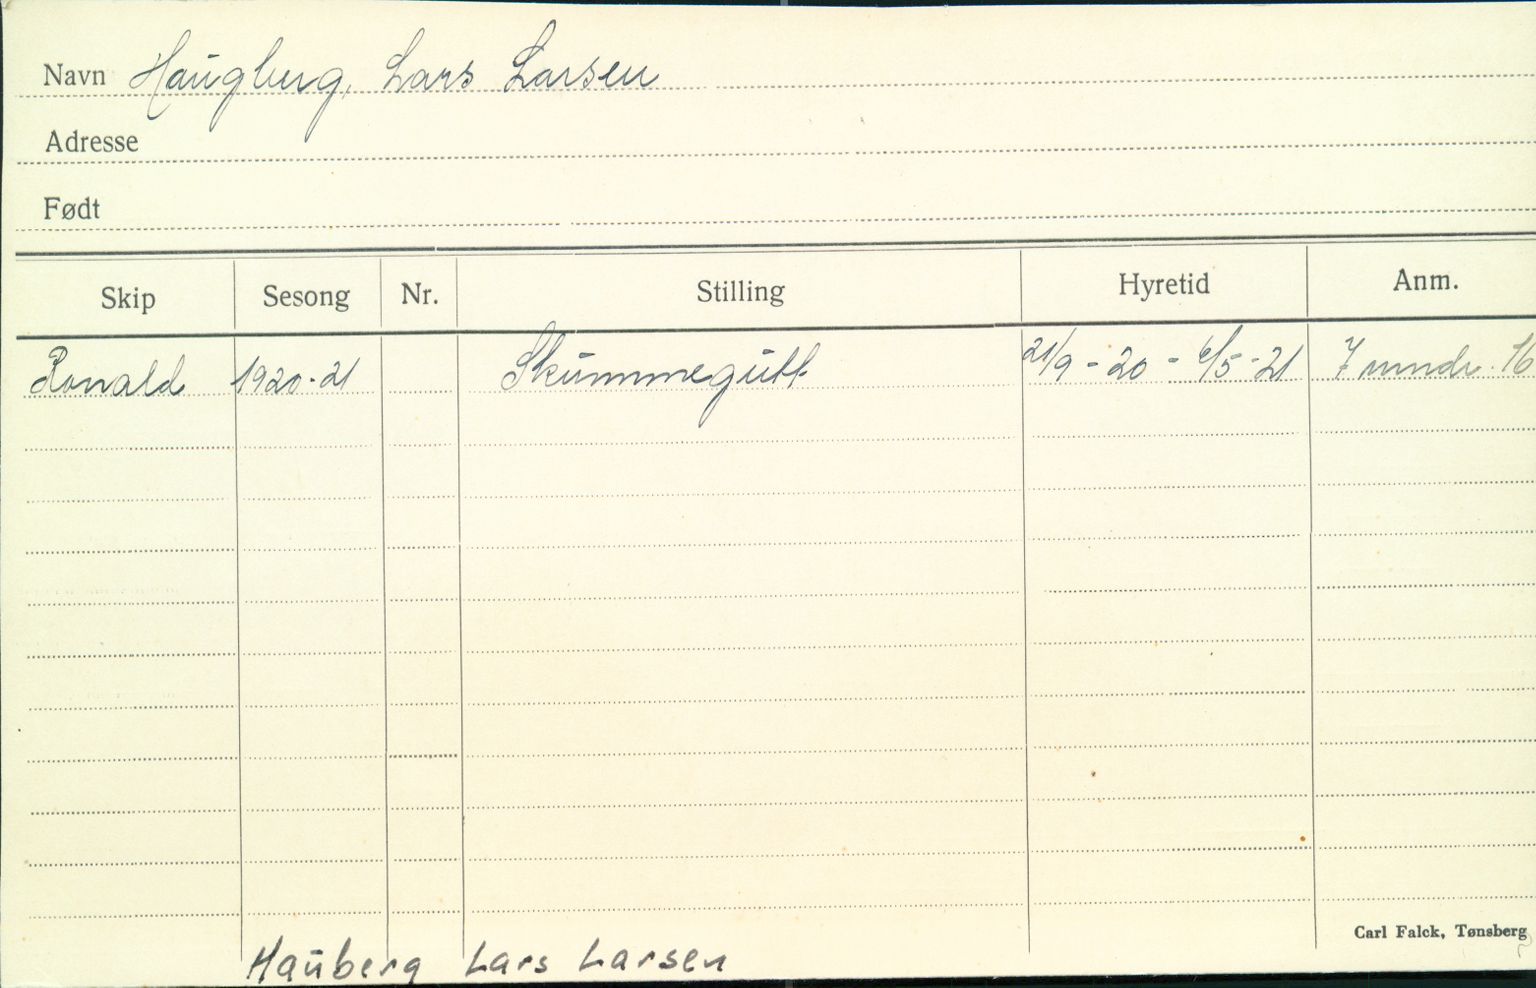 Navn Haugberg, Lars Larsen
Adresse
Født
Skip Sesong Nr. Stilling Hyretid Anm.
Ronald 1920-21 Skummegutt 21/9-20 - 6/5-21 7 mndr. 16
Carl Falck, Tønsberg
Hauberg Lars Larsen